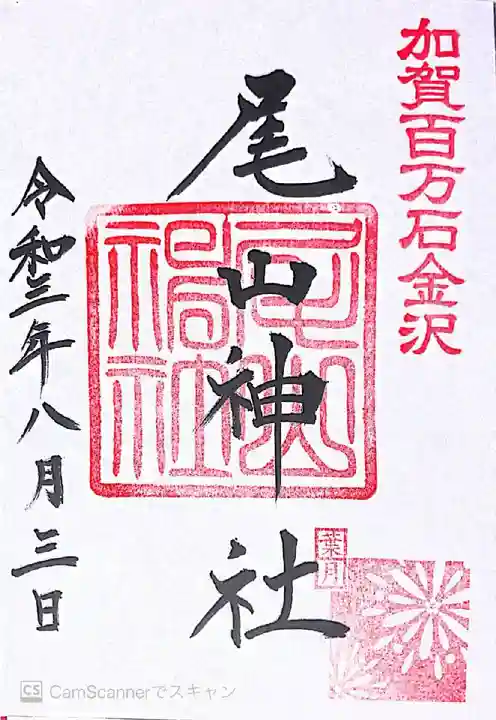 加賀百万石金沢
尾山神社
令和三年八月三日
葉月
CS CamScannerでスキャン